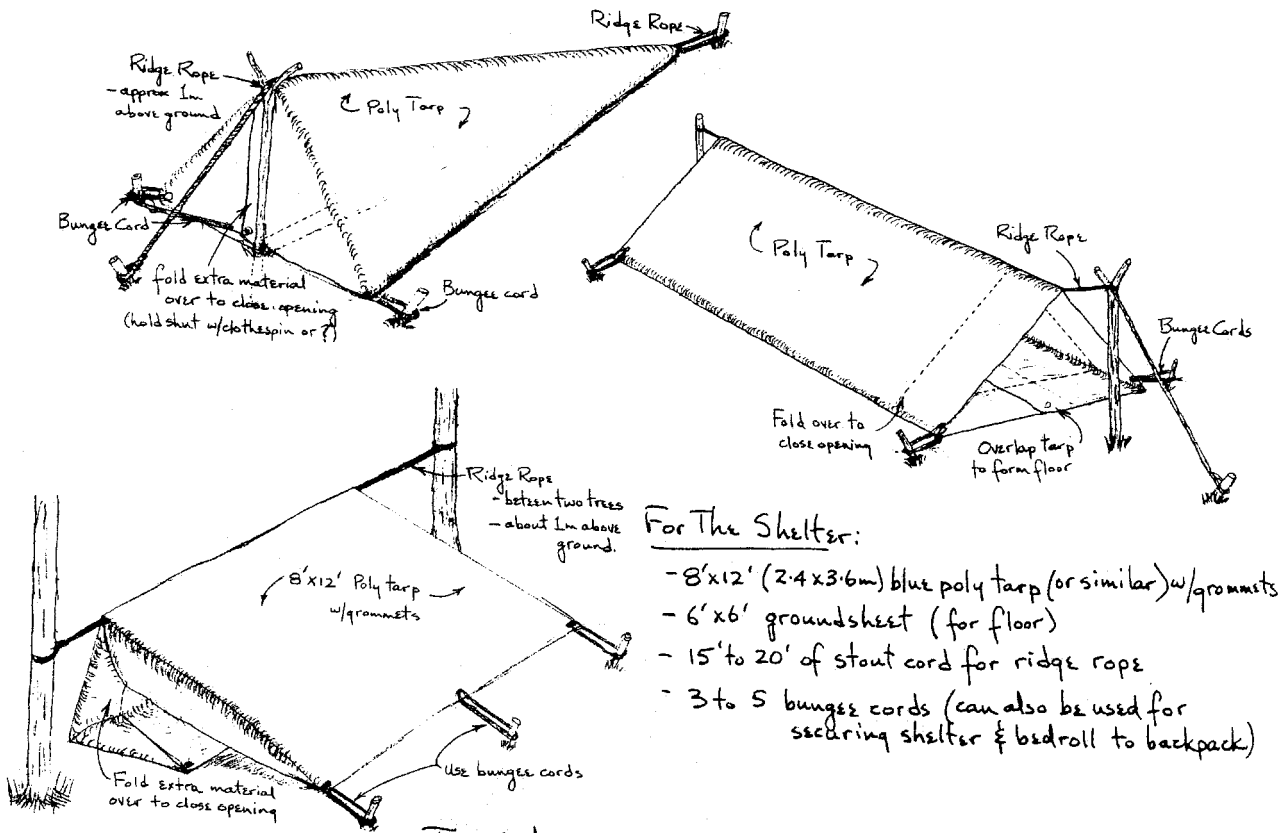 Ridge Rope
Ridge Rope
- approx 1m
above ground
Poly Tarp
Bungee Cord
fold extra material
over to close opening
(hold shut w/clothespin or ?)
Bungee cord
Poly Tarp
Ridge Rope
Bungee Cords
Fold over to
close opening
Overlap tarp
to form floor
Ridge Rope
- beteen two trees
- about 1m above
ground.
8'x12' Poly tarp
w/grommets
Use bungee cords
Fold extra material
over to close opening
For The Shelter:
- 8'x12' (2.4x3.6m) blue poly tarp (or similar) w/grommets
- 6'x6' groundsheet (for floor)
- 15' to 20' of stout cord for ridge rope
- 3 to 5 bungee cords (can also be used for
securing shelter & bedroll to backpack)